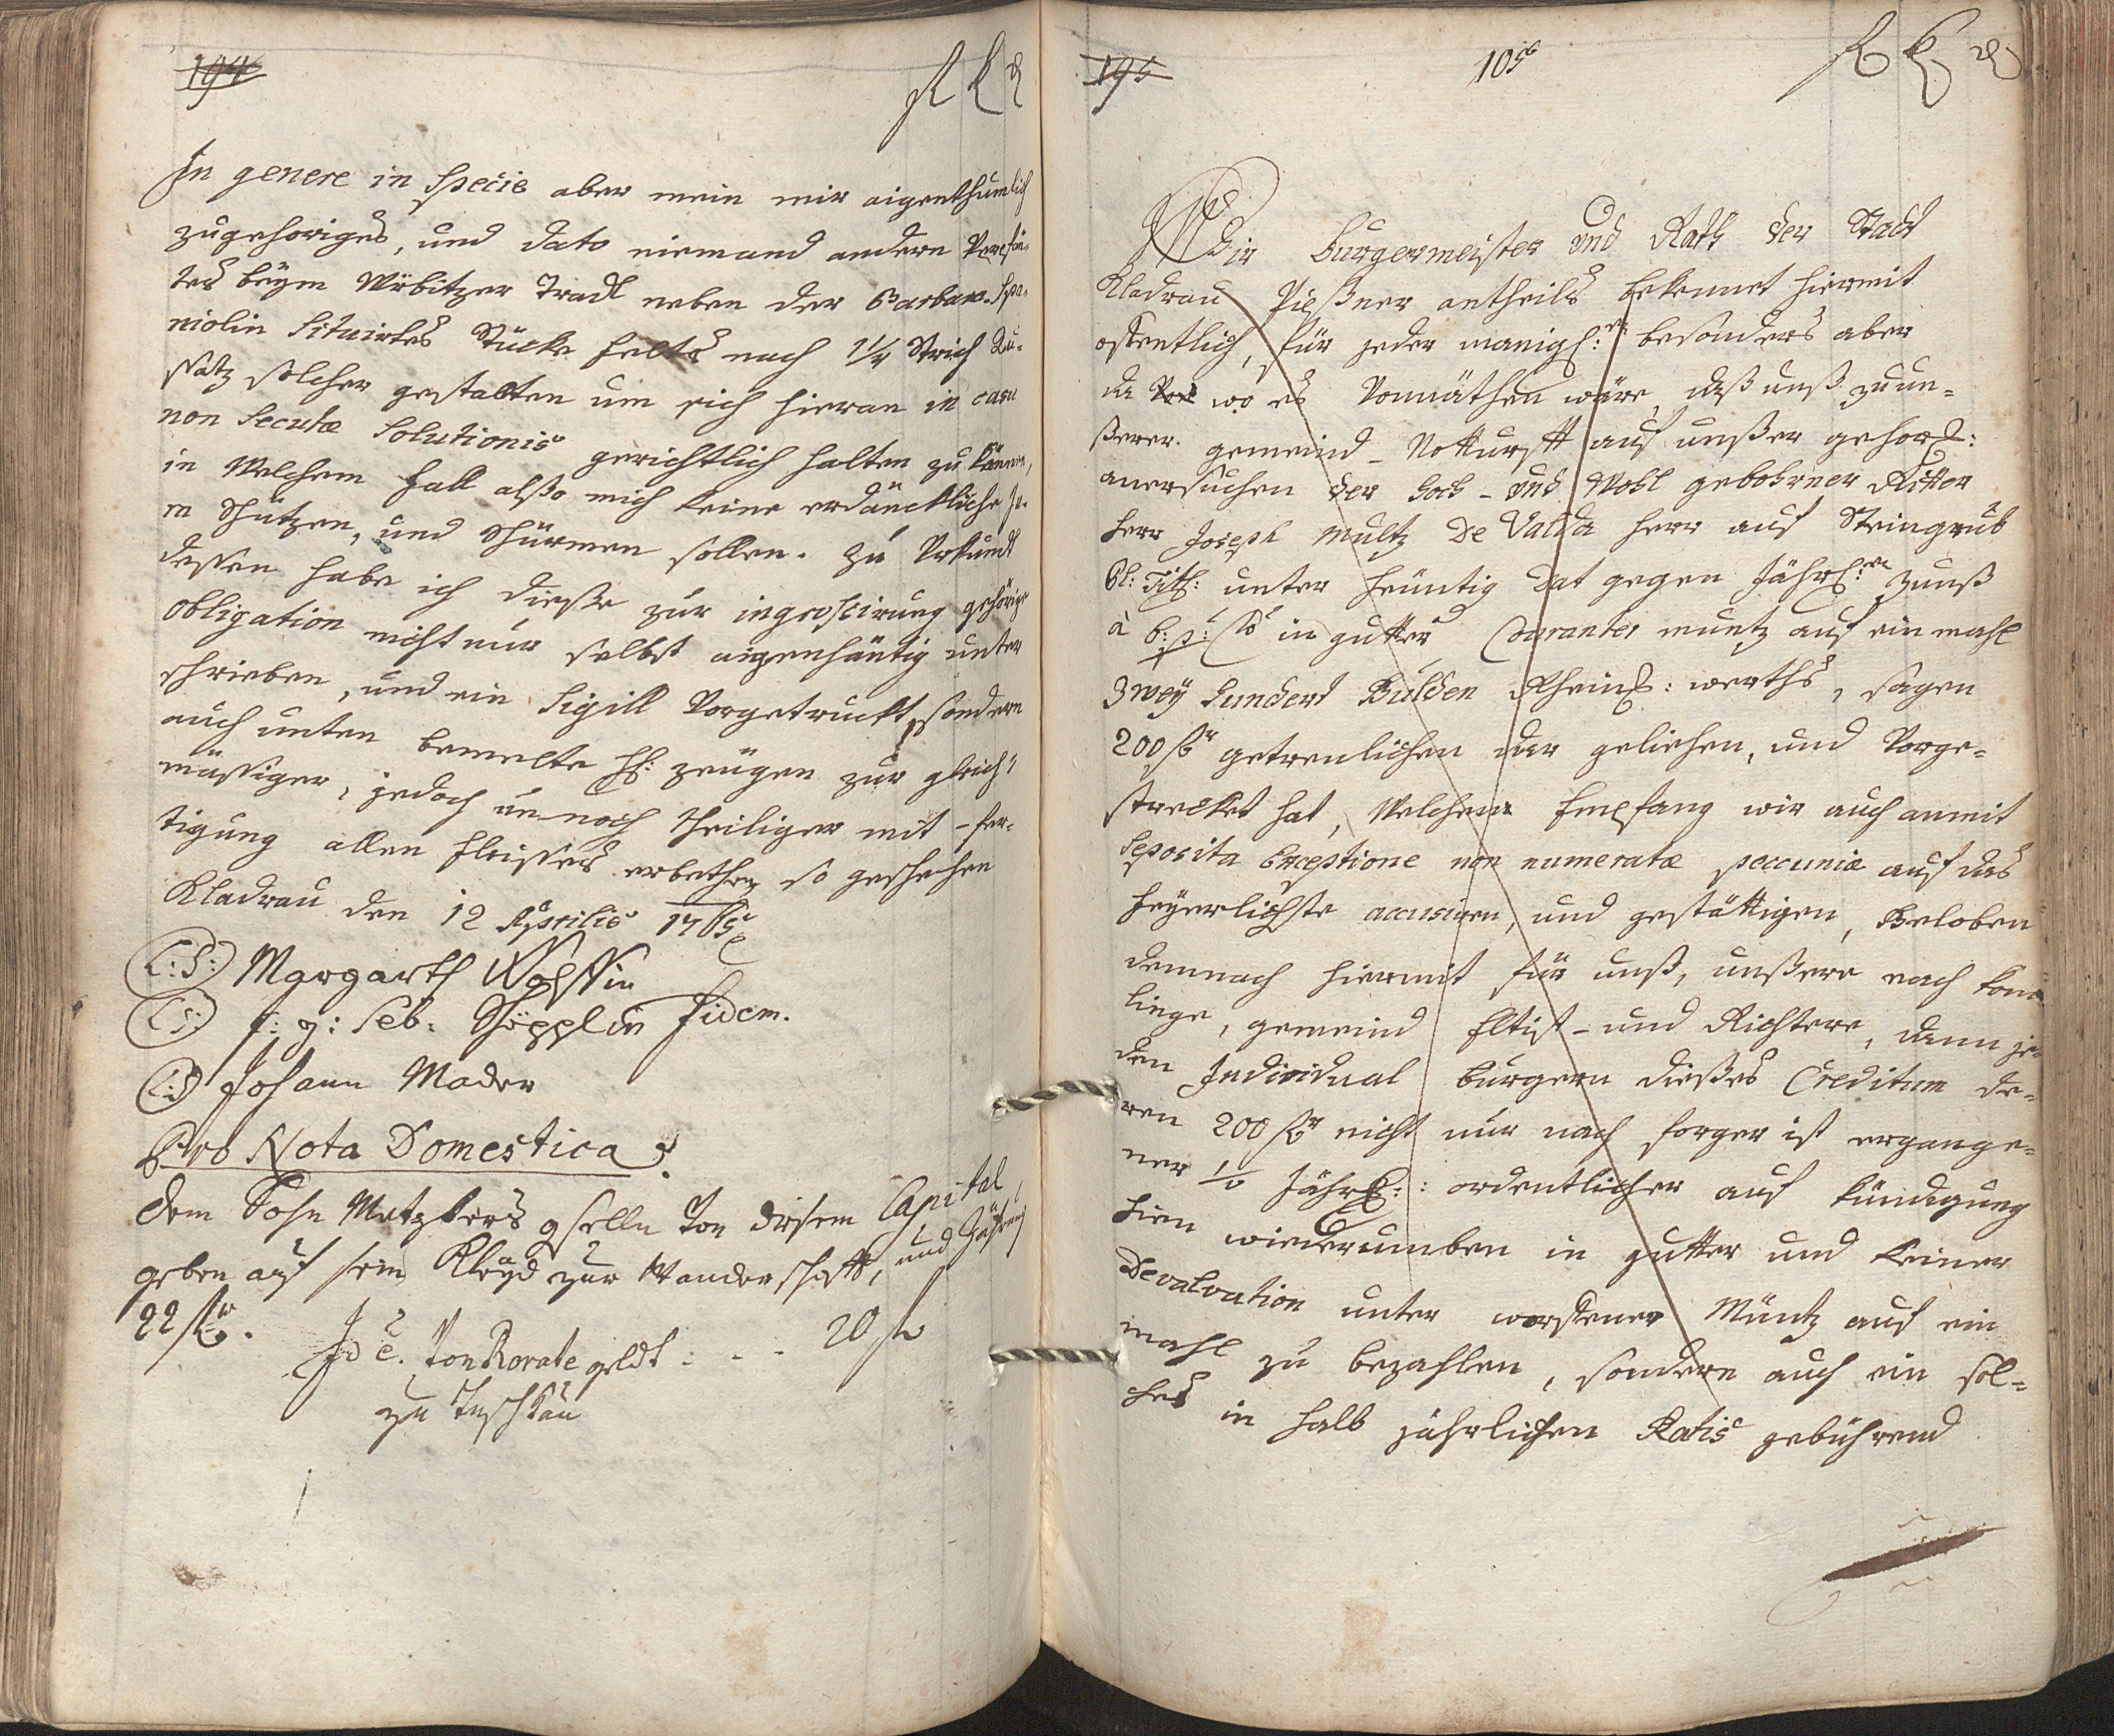 194
In genere in Specie aber mein mir aigenthumlich
zugehöriges, und dato niemand andern
tes beÿm Wÿbitzer Tradl neben der Barbara Spa-
niolin Situirtes Stücke Felts nach 1¼ Strich Au-
ssatz solcher gestalten um sich hieran in casu
non Secutæ Solutionis gerichtlich halten zu können,
in Welchem Fall alßo mich keine erdänckliche
n Schützen, und Schürmen sollen. Zu Urkundt
dessen habe ich dieße zur ingrossirung gehörige
obligation nicht nur selbst aigenhäntig unter
schrieben, und ein Sigill Vorgetruckt, sondern
auch unten bemelte HH: zeügen zur gleich-
mässiger, jedoch un-noch theiliger mit-fer-
tigung allen Fleisses erbethen so geschehen
Kladrau den 12 Aprilis 1765
L:S: Margareth
L:S: F: g: Seb: Schöpplin Fidem.
L:S Johann Mader
Pro Nota Domestica
dem Sohn Matzkers gselln Von disem Capital
geben auf sein Kleÿd zur Wanderschafft, und
22 fl
Ide. Von Rorate geldt : - - 20 fl
zu Tuschkau
195
105
Wir Burgermeister und Rath der Stadt
Kladrau Pißner antheils bekennet hiermit
offentlich, für jeder manigl: besonders aber
da wo es Vonnäthen wäre, daß unß zu un-
ßerer gemeind-Notturfft auf unßer gehors:
anersuchen der Hoch- und Wohl gebohrner Ritter
Herr Joseph Multz De Valda Herr auf Steingrüb
Pl: Titl: unter heüntig dat gegen Jährl: Zünß
à 6: p: Cto in gutter Couranter müntz auf ein mahl
Zweÿ Hundert Gulden Rheinl: werths, sagen
200 fl getreulichen dar geliehen, und Vorge-
strecket hat, Welchen Empfang wir auch anmit
Seposita Exceptione non numeratæ peccuniæ auf das
Feÿerlichste accusiren, und gestättigen, Geloben
demnach hiermit für unß, unßere nach kom-
linge, gemeind Eltist- und Richtere, dann je-
den Individual burgern dießes Creditum de-
ren 200 fl nicht nur nach forger ist ergange-
ner ½ Jährl: ordentlicher auf kündigung
hien wiederumben in gutter und keiner
Devalvation unter worffener Müntz auf ein
mahl zu bezahlen, sondern auch ein sol-
ches in halb jährlichen Ratis gebührend